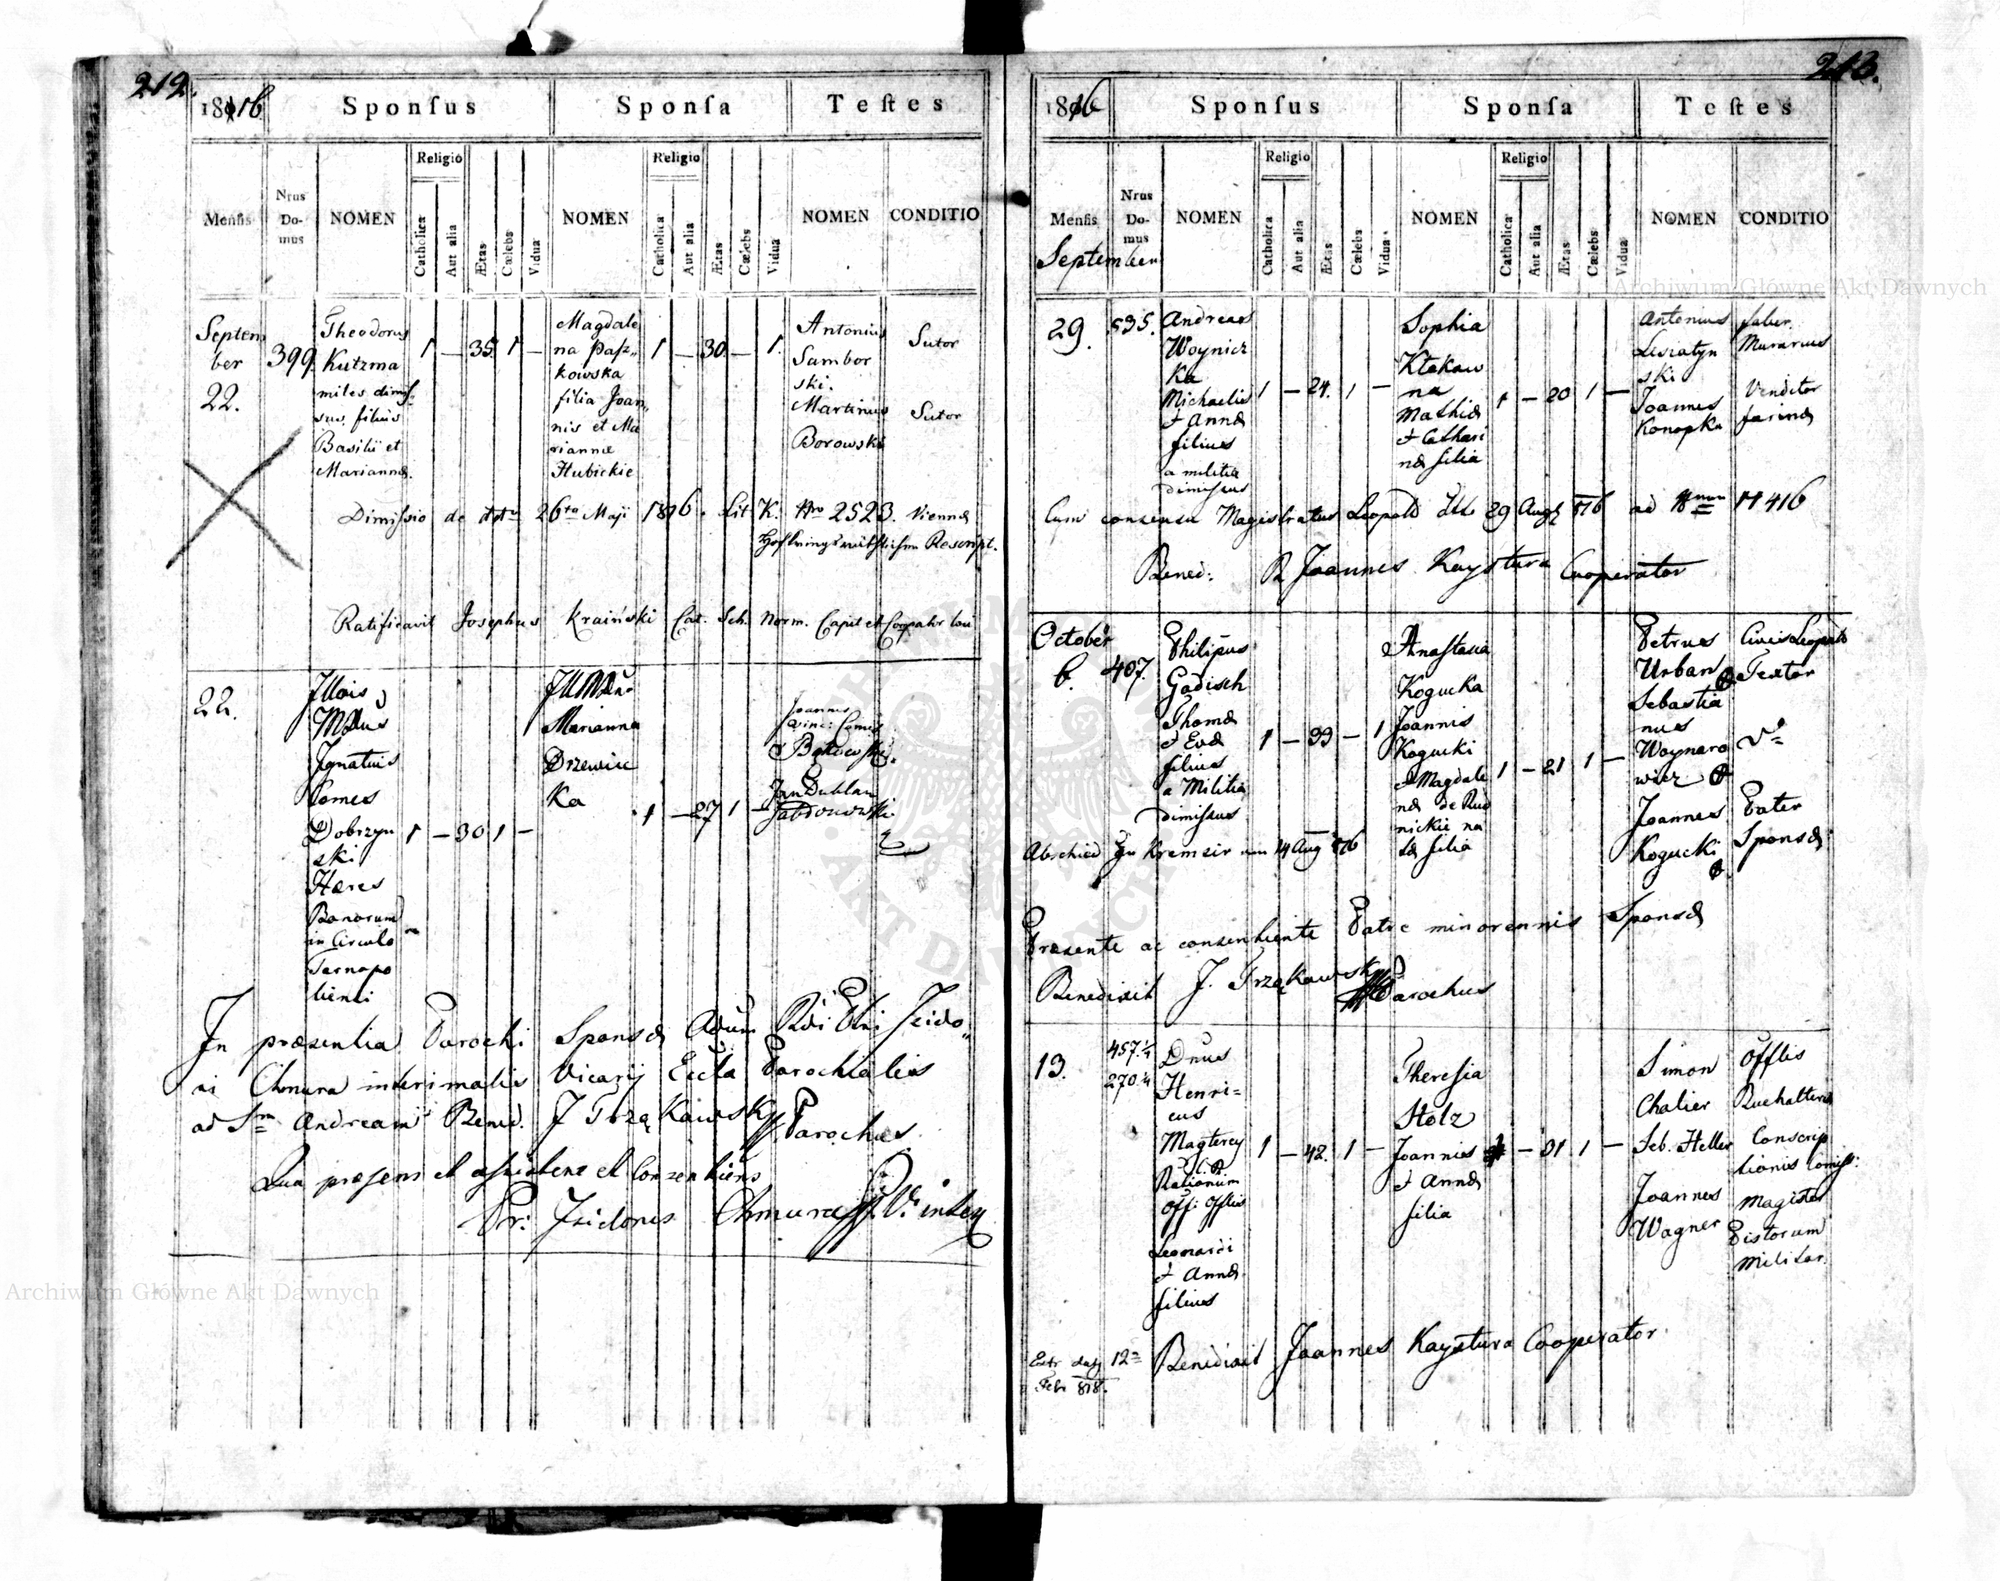 212.
1816
Sponſus
Sponſa
Teſtes
Menſis
Nrus Domus
NOMEN
Religio
Catholica
Aut alia
Ætas
Cœlebs
Vidua
NOMEN
Religio
Catholica
Aut alia
Ætas
Cœlebs
Vidua
NOMEN
CONDITIO
Septem
ber
22.
399
Theodorus
Kutzma
miles dimis
sus, filius
Basilii et
Mariannæ.
1 — 35 1 —
Magdale
na Pasz
kowska
filia Joan
nis et Ma
riannæ
Hubickie
1 — 30 — 1.
Antonius
Sambor
ski.
Martinus
Borowski
Sutor
Sutor
Dimissio de dto 26ta Maji 1816. Lit K. Nro 2523. Viennæ
Rescript.
Ratificavit Josephus Kraiński Cat. Sch. Norm. Capit et Coopator
22.
Illris
Ignatius
Comes
Dobrzyn
ski
Hæres
Bonorum
in Circulo
Tarnopo
liensi
1 — 30 1 —
Marianna
Drzewiec
ka
1 — 27 1 —
Joannes
Comes
Bąkowski
Jan Dublan
Jabłonowski
In præsentia Parochi Sponsæ Adum Rdi Ptri Izido
ri Chmura interimalis Vicarij Eccla Parochialis
ad Sm Andream Bened. J Trząkawski Parochus
Qua præsens et assistens et Consentiens
Pr: Izidorus Chmura
213.
1816
Sponſus
Sponſa
Teſtes
Menſis
Nrus Domus
NOMEN
Religio
Catholica
Aut alia
Ætas
Cœlebs
Vidua
NOMEN
Religio
Catholica
Aut alia
Ætas
Cœlebs
Vidua
NOMEN
CONDITIO
September
29.
535.
Andreas
Woynicz
ka
Michaelis
et Annæ
filius
a militia
dimissus
1 — 24. 1 —
Sophia
Ktakaw
na
Mathiæ
et Cathari
næ filia
1 — 20 1 —
Antonius
Lesiatyn
ski
Joannes
Konopka
faber
Murarius
Venditor
farinæ
Cum consensu Magistratus Leopold ddto 29 Aug 816 ad Num 11416
Bened: R Joannes Kaystura Cooperator
October
6.
407.
Philipus
Gadisch
Thomæ
et Evæ
filius
a Militia
dimissus
1 — 33 — 1
Anastasia
Kogucka
Joannis
Kogucki
et Magdale
næ de Rud
nickie na
tæ filia
1 — 21 1 —
Petrus
Urban
Sebastia
nus
Woynaro
wicz
Joannes
Kogucki
Civis Leopold
Textor
Pater
Sponsæ
Abschied zu Kremsir 14 Aug 816
Præsente ac consentiente Patre minorennis Sponsæ
Benedixit J. Trząkawski Parochus
13.
457 ¼
270 ¼
Dnus
Henri=
cus
Magterey
Rationum
Off: Offlis
Leonardi
et Annæ
filius
1 — 42. 1 —
Theresia
Stolz
Joannis
et Annæ
filia
1 — 31 1 —
Simon
Chalier
Seb. Heller
Joannes
Wagner
Offlis
Buchalteriæ
Conscrip
tionis Comiss:
Magister
Pistorum
Militar.
Extr. 12
Febr 818.
Benedixit Joannes Kaystura Cooperator.
Archiwum Główne Akt Dawnych
Archiwum Główne Akt Dawnych